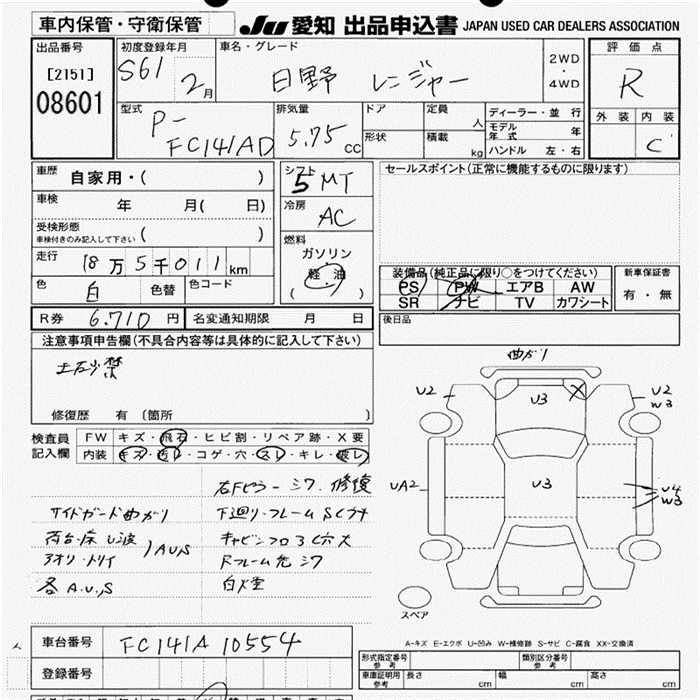 車内保管・守衛保管 JU 愛知 出品申込書 JAPAN USED CAR DEALERS ASSOCIATION
出品番号
[2151]
08601
初度登録年月
S61 2月
車名・グレード
日野 レンジャー
2WD
・
4WD
評価点
R
外装 内装
C
型式
P-
FC141AD
排気量
5.75 CC
ドア
形状
定員 人
積載 kg
ディーラー・並 行
モデル年式 年
ハンドル 左・右
車歴 自家用・( )
車検 年 月( 日)
受検形態 ( )
車検付きのみ記入して下さい
走行 18万5千011km
色 白 色替 色コード
シフト
5MT
冷房
AC
燃料
ガソリン
軽 油
( )
セールスポイント(正常に機能するものに限ります)
装備品(純正品に限り○をつけてください)
PS PW エアB AW
SR ナビ TV カワシート
新車保証書
有・無
R券 6.710 円 名変通知期限 月 日
後日品
注意事項申告欄(不具合内容等は具体的に記入して下さい)
土砂禁
修復歴 有 〔箇所 〕
検査員
記入欄
FW キズ・飛石・ヒビ割・リペア跡・X要
内装 キズ・汚レ・コゲ・穴・スレ・キレ・破レ
右Fピラーシワ 修復
サイドガード曲がり 下廻り・フレームSCプチ
荷台・床 U波 キャビンフロアC穴大
アオリ・トリイ )AUS
各 A.U,S
曲がり
U2
U3
U2
W3
UA2
U3
U4
W3
スペア
A-キズ E-エクボ U-凹み W-補修跡 S-サビ C-腐食 XX-交換済
車台番号 FC141A 10554
登録番号
形式指定番号
参考
類別区分番号
参考
車庫証明用
参考
長さ cm 幅 cm 高さ cm